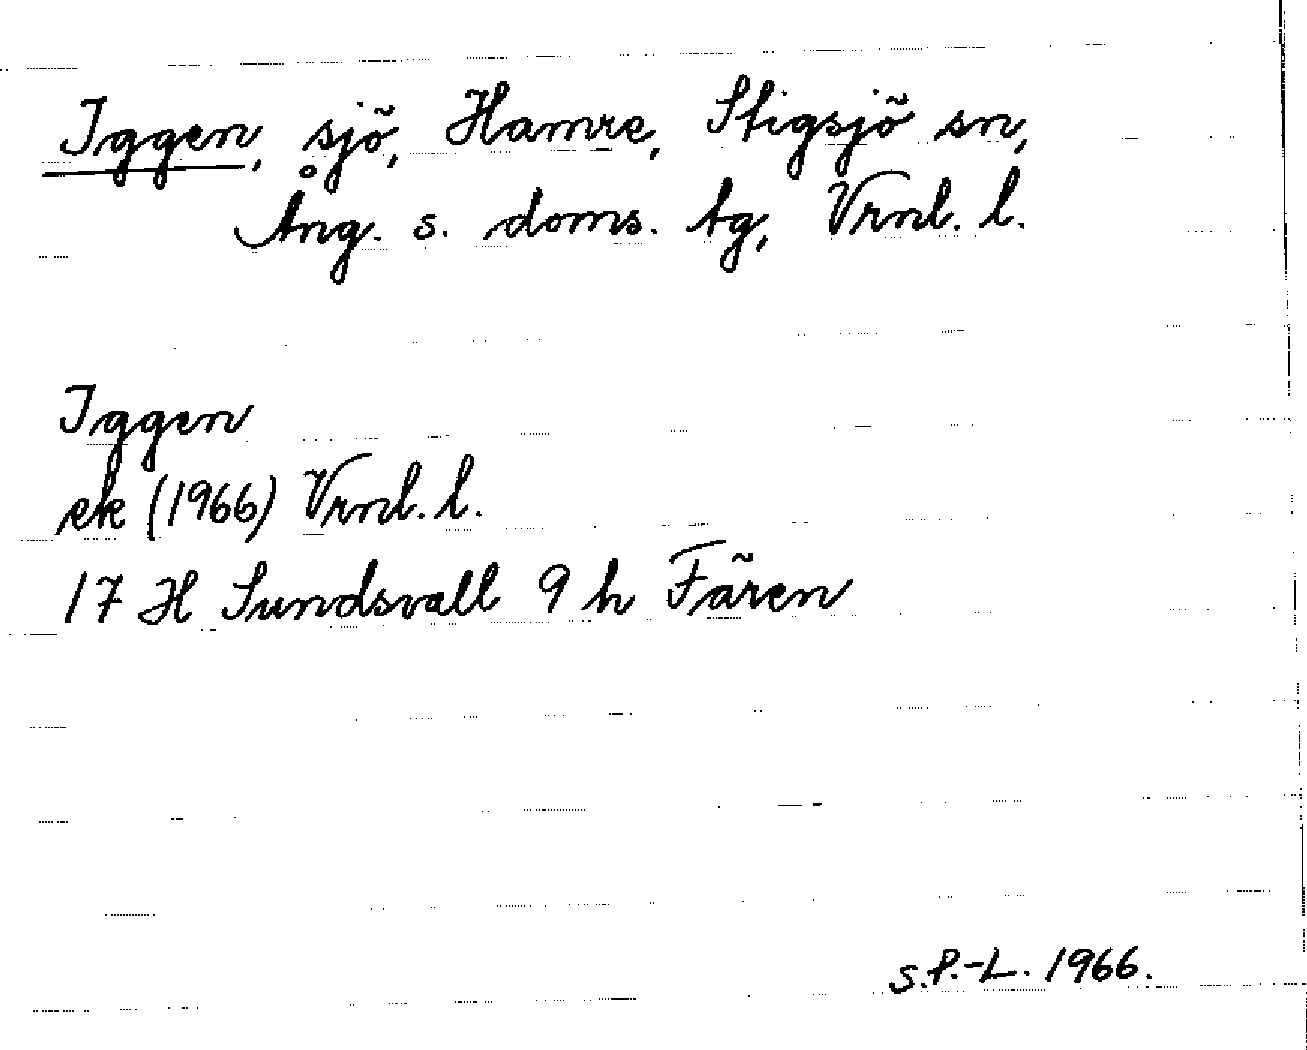 Iggen, sjö, Hamre, Stigsjö sn,
Ång. s. doms. tg, Vrnl. l.
Iggen
ek (1966) Vrnl. l.
17 H Sundsvall 9 h Fären
S.P.-L. 1966.